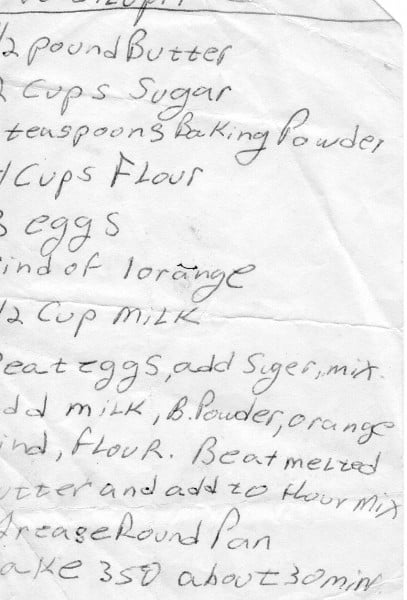 1/2 pound Butter
2 Cups Sugar
teaspoons Baking Powder
4 Cups Flour
3 eggs
ind of 1 orange
1/2 Cup Milk
Beat eggs, add Suger, mix.
dd milk, B. Powder, orange
ind, flour. Beat melted
utter and add to flour mix
Grease Round Pan
ake 350 about 30 min.